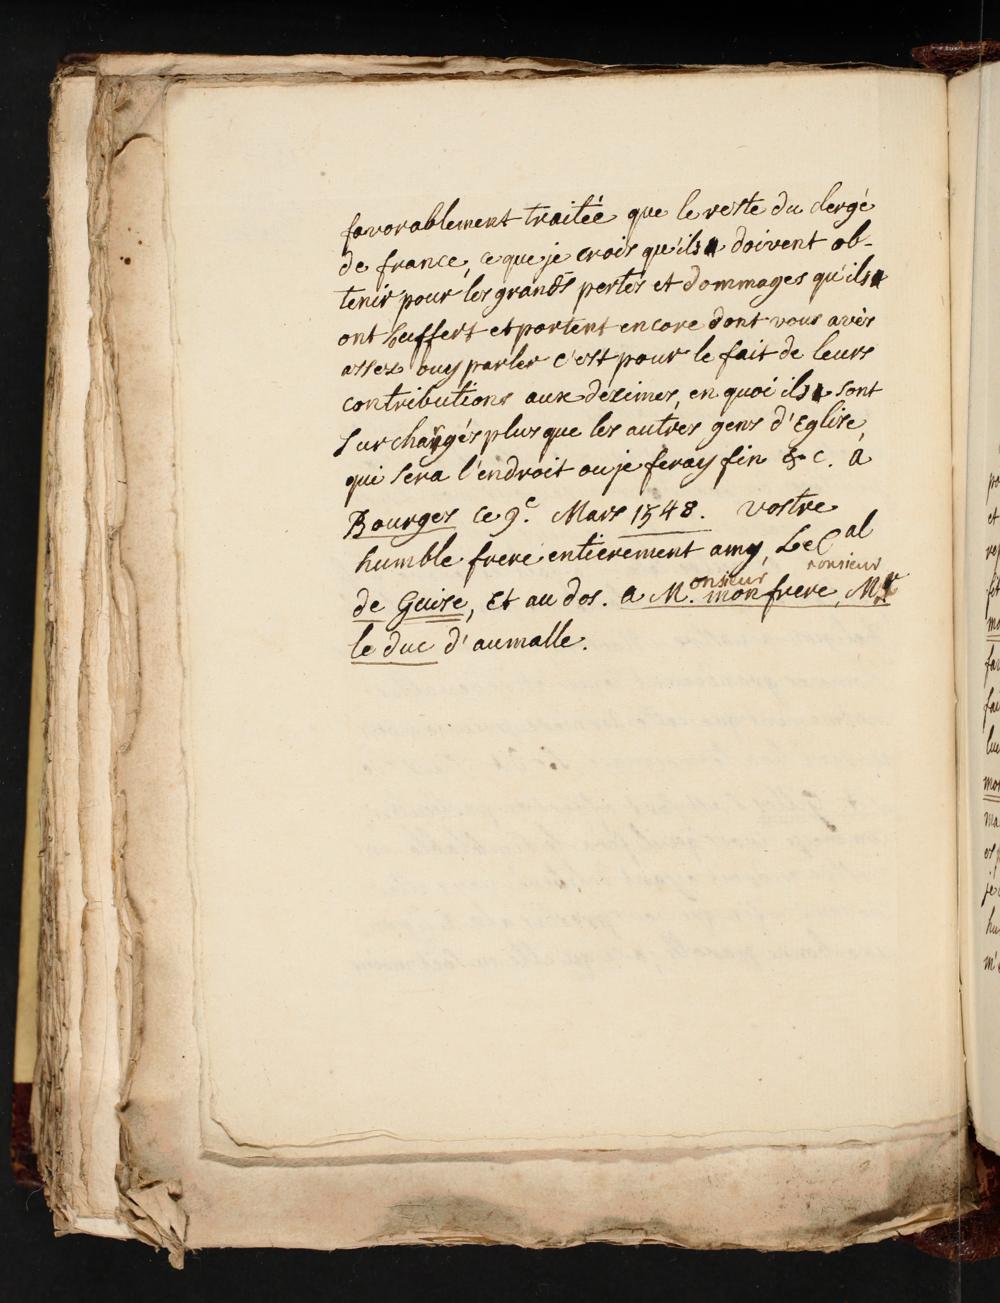 favorablement traitée que le reste du clergé
de france, ce que je crois qu'ils doivent ob-
tenir pour les grands pertes et dommages qu'ils
ont souffert et portent encore dont vous avès
assez ouy parler c'est pour le fait de leurs
contributions aux dezimes, en quoi ils sont
surchargés plus que les autres gens d'Eglise,
qui sera l'endroit ou je feray fin &c. a
Bourges ce 9e. Mars 1548. vostre
humble frere entierement amy, Le Cal
de Guise, Et au dos. a M.onsieur mon frere, Monsieur
le duc d'aumalle.